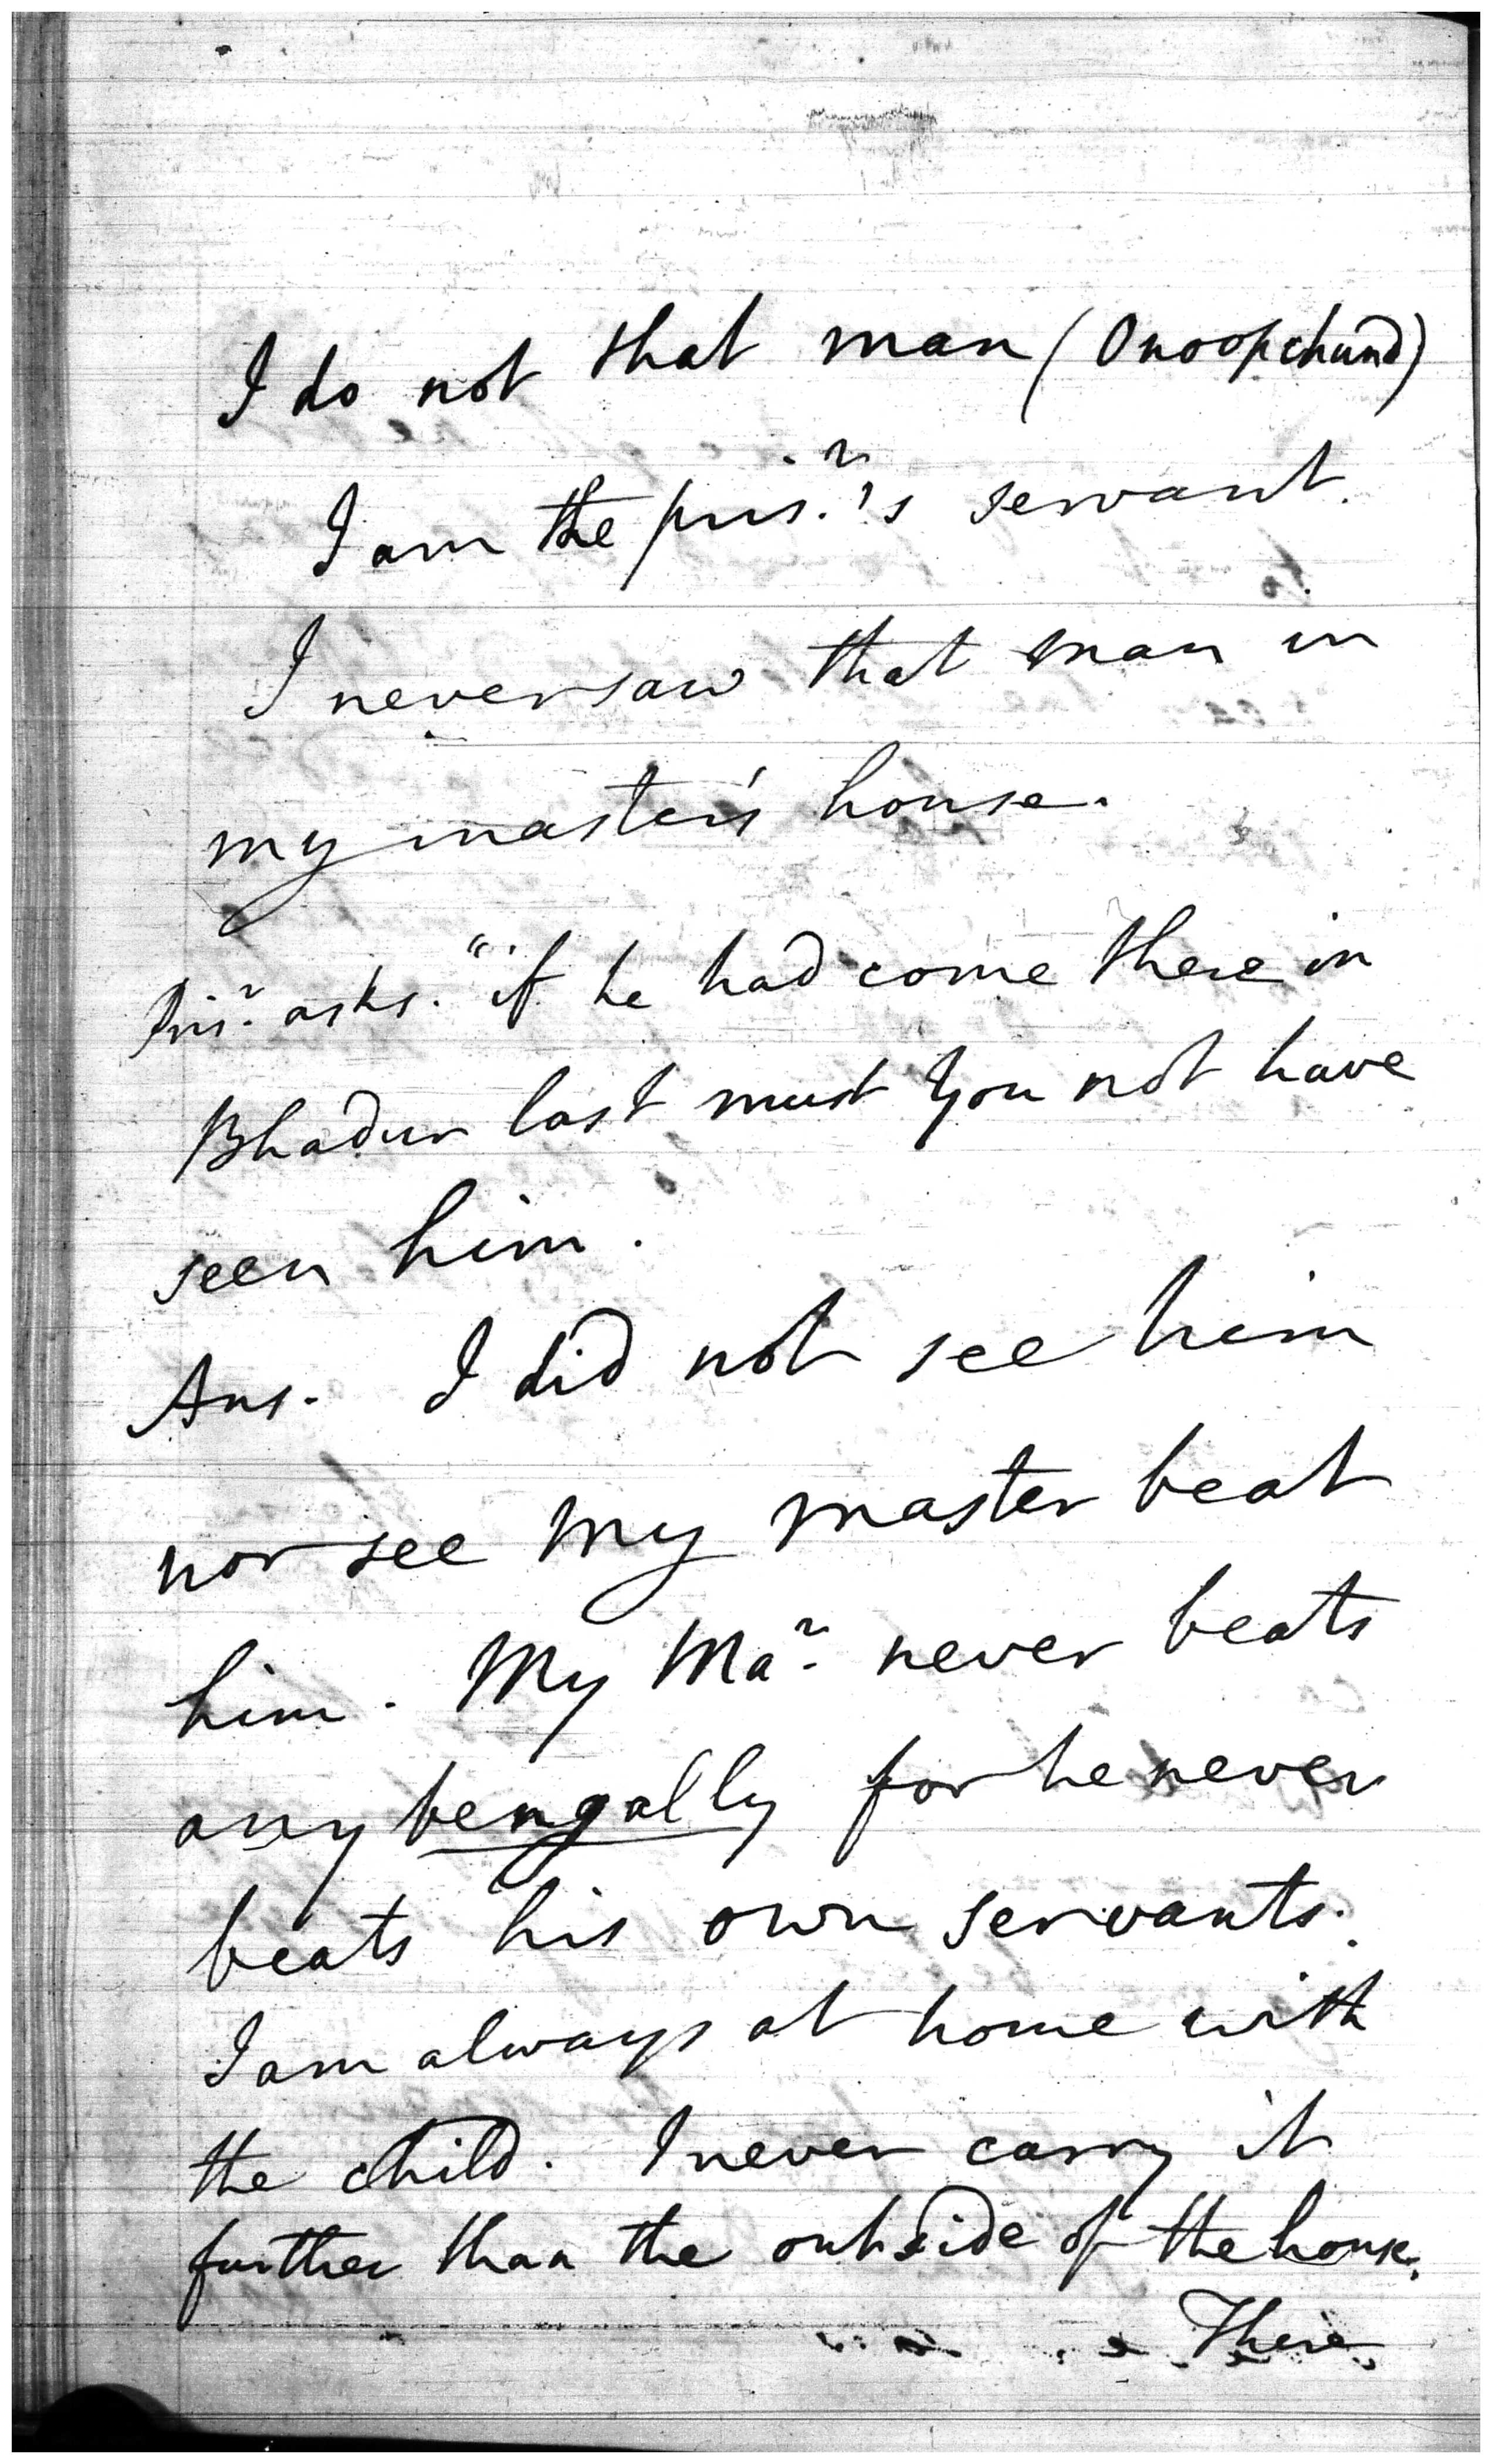 I do not that man (Onoopchund)
I am the pris.r's servant.
I never saw that man in
my master's house.
Pris.r asks. "if he had come there in
Bhadur last must you not have
seen him.
Ans. I did not see him
nor see my master beat
him. My Mar. never beats
any bengally for he never
beats his own servants.
I am always at home with
the child. I never carry it
further than the outside of the house.
There